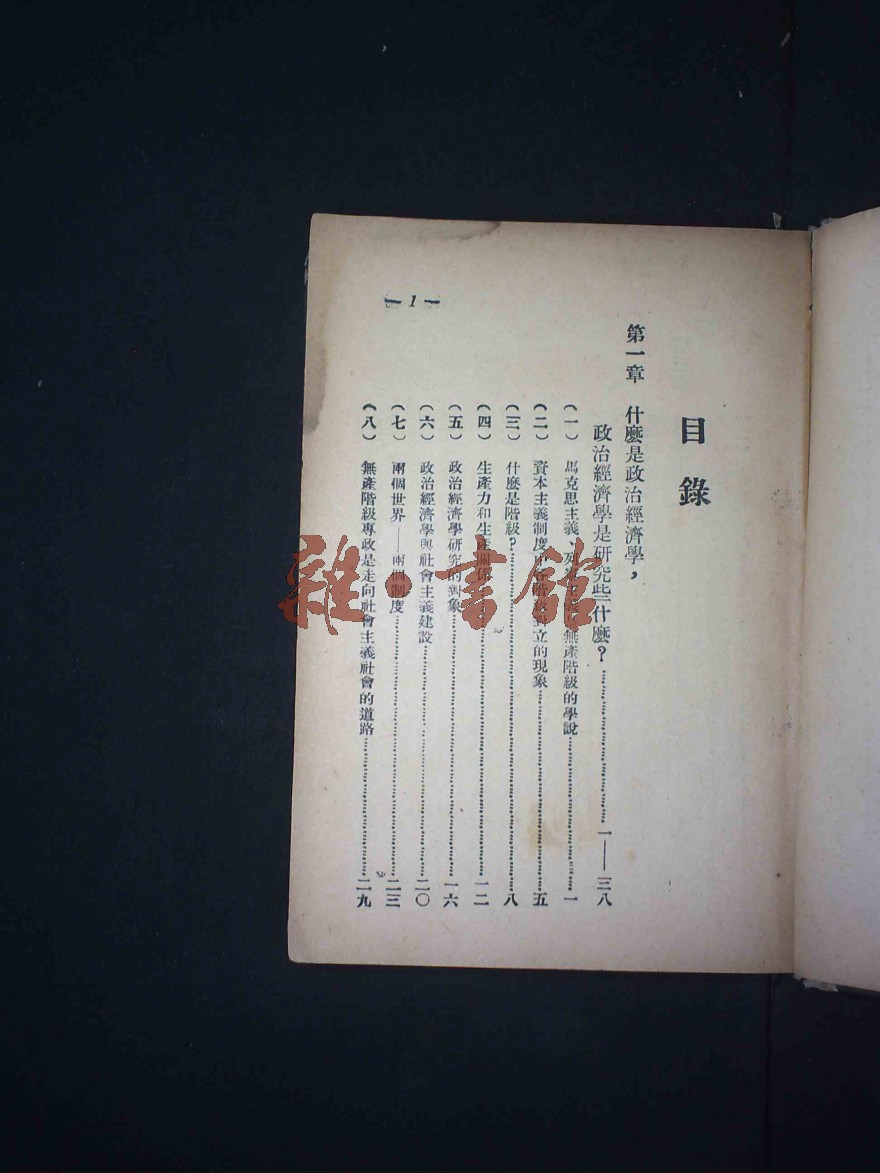 目錄
第一章 什麼是政治經濟學，
政治經濟學是研究些什麼？……一——三八
（一） 馬克思主義、列寧主義無產階級的學說……一
（二） 資本主義制度中各階級對立的現象……五
（三） 什麼是階級？……八
（四） 生產力和生產關係……一二
（五） 政治經濟學研究的對象……一六
（六） 政治經濟學與社會主義建設……二〇
（七） 兩個世界——兩個制度……二三
（八） 無產階級專政是走向社會主義社會的道路……二九
— 1 —
雜·書館